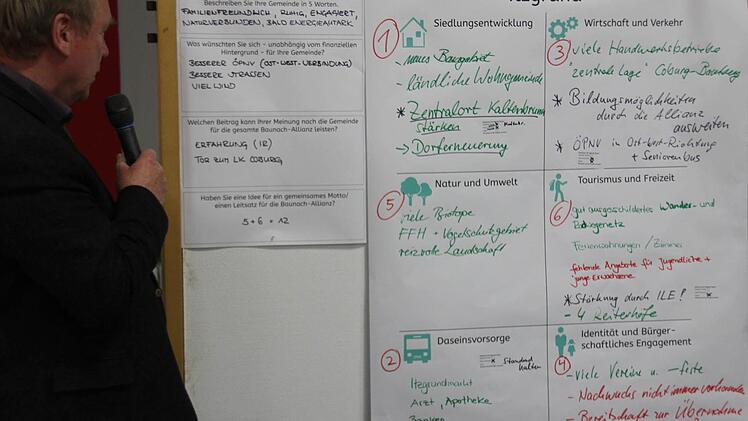 Beschreiben Sie Ihre Gemeinde in 5 Worten.
FAMILIENFREUNDLICH, RUHIG, ENGAGIERT,
NATURVERBUNDEN, BALD ENERGIEAUTARK
Was wünschten Sie sich - unabhängig vom finanziellen
Hintergrund - für Ihre Gemeinde?
BESSERER ÖPNV (OST-WEST-VERBINDUNG)
BESSERE STRASSEN
VIEL WILD
Welchen Beitrag kann Ihrer Meinung nach die Gemeinde
für die gesamte Baunach-Allianz leisten?
ERFAHRUNG (IZ)
TOR ZUM LK COBURG
Haben Sie eine Idee für ein gemeinsames Motto/
einen Leitsatz für die Baunach-Allianz?
5+6 = 12
Itzgrund
1
Siedlungsentwicklung
- neues Baugebiet
- ländliche Wohngemeinde
* Zentralort Kaltenbrunn
stärken
→ Dorferneuerung
Wirtschaft und Verkehr
3
viele Handwerksbetriebe
"zentrale Lage" Coburg-Bamberg
* Bildungsmöglichkeiten
durch die Allianz
ausweiten
* ÖPNV in Ost-West-Richtung
+ Seniorenbus
5
Natur und Umwelt
viele Biotope
FFH + Vogelschutzgebiet
reizvolle Landschaft
Tourismus und Freizeit
6
gut ausgeschildertes Wander- und
Radwegenetz
Ferienwohnungen / Zimmer
fehlende Angebote für Jugendliche +
junge Erwachsene
* Stärkung durch ILE!
- 4 Reiterhöfe
2
Daseinsvorsorge
Standard
halten
Itzgrundmarkt
Arzt, Apotheke
Banken
Identität und Bürger-
schaftliches Engagement
4
- viele Vereine u. -feste
- Nachwuchs nicht immer vorhanden
- Bereitschaft zur Übernahme